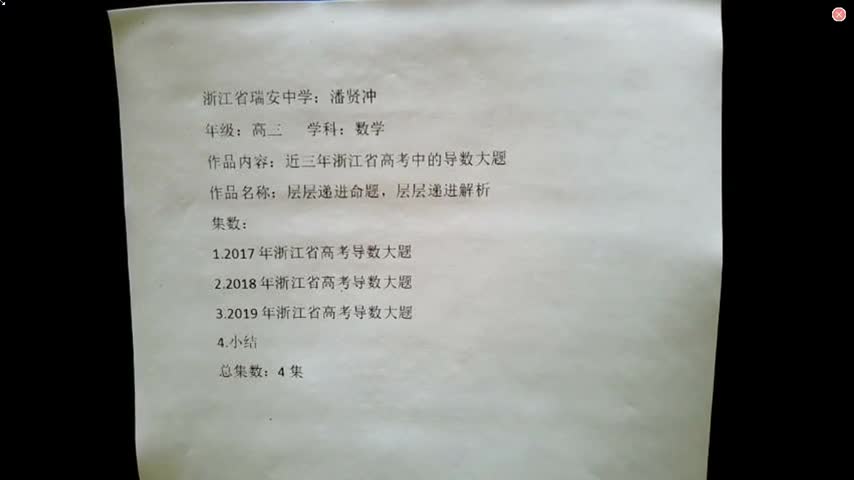 浙江省瑞安中学：潘贤冲
年级：高三 学科：数学
作品内容：近三年浙江省高考中的导数大题
作品名称：层层递进命题，层层递进解析
集数：
1.2017年浙江省高考导数大题
2.2018年浙江省高考导数大题
3.2019年浙江省高考导数大题
4.小结
总集数：4集